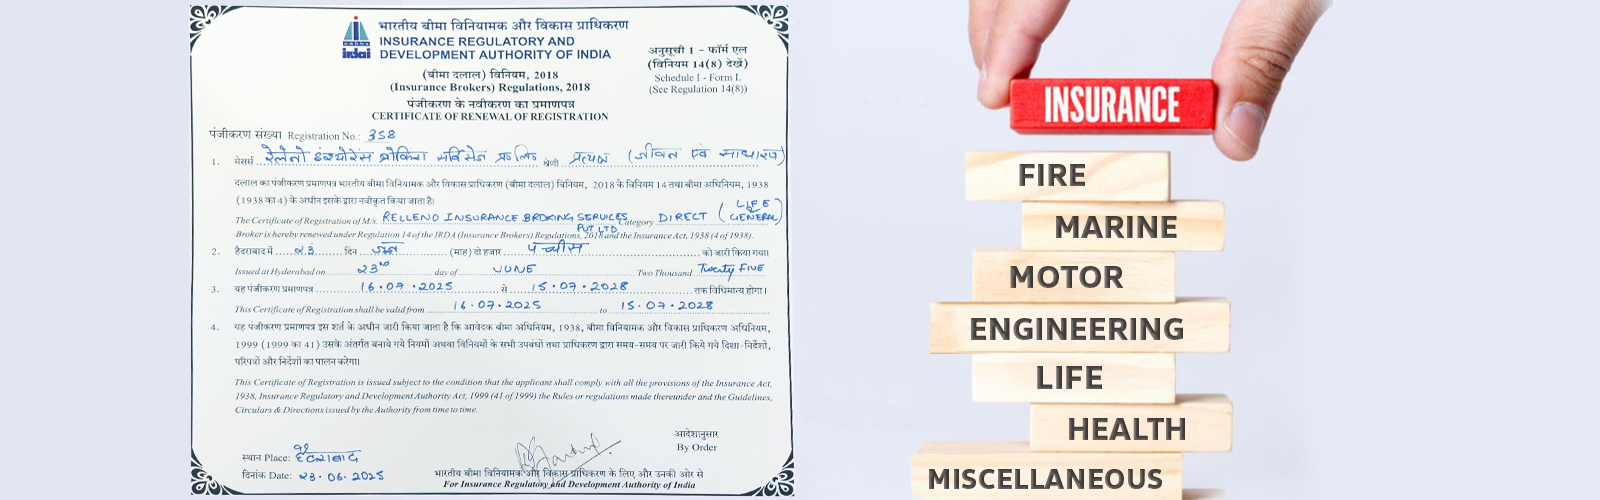 भारतीय बीमा विनियामक और विकास प्राधिकरण
irdai
INSURANCE REGULATORY AND
DEVELOPMENT AUTHORITY OF INDIA
अनुसूची 1 - फॉर्म एल
(विनियम 14(8) देखें)
Schedule I - Form L
(See Regulation 14(8))
(बीमा दलाल) विनियम, 2018
(Insurance Brokers) Regulations, 2018
पंजीकरण के नवीकरण का प्रमाणपत्र
CERTIFICATE OF RENEWAL OF REGISTRATION
पंजीकरण संख्या Registration No.: 358
1. मेसर्स रेलेनो इंश्योरेंस ब्रोकिंग सर्विसेज प्रा लि श्रेणी प्रत्यक्ष (जीवन एवं साधारण)
दलाल का पंजीकरण प्रमाणपत्र भारतीय बीमा विनियामक और विकास प्राधिकरण (बीमा दलाल) विनियम, 2018 के विनियम 14 तथा बीमा अधिनियम, 1938
(1938 का 4) के अधीन इसके द्वारा नवीकृत किया जाता है।
The Certificate of Registration of M/s. RELLENO INSURANCE BROKING SERVICES PVT LTD Category DIRECT (LIFE & GENERAL)
Broker is hereby renewed under Regulation 14 of the IRDA (Insurance Brokers) Regulations, 2018 and the Insurance Act, 1938 (4 of 1938).
2. हैदराबाद में २३ दिन जून (माह) दो हजार पच्चीस को जारी किया गया।
Issued at Hyderabad on 23rd day of JUNE Two Thousand Twenty FIVE
3. यह पंजीकरण प्रमाणपत्र 16.07.2025 से 15.07.2028 तक विधिमान्य होगा।
This Certificate of Registration shall be valid from 16.07.2025 to 15.07.2028
4. यह पंजीकरण प्रमाणपत्र इस शर्त के अधीन जारी किया जाता है कि आवेदक बीमा अधिनियम, 1938, बीमा विनियामक और विकास प्राधिकरण अधिनियम,
1999 (1999 का 41) उसके अंतर्गत बनाये गये नियमों अथवा विनियमों के सभी उपबंधों तथा प्राधिकरण द्वारा समय-समय पर जारी किये गये दिशा-निर्देशों,
परिपत्रों और निर्देशों का पालन करेगा।
This Certificate of Registration is issued subject to the condition that the applicant shall comply with all the provisions of the Insurance Act,
1938, Insurance Regulatory and Development Authority Act, 1999 (41 of 1999) the Rules or regulations made thereunder and the Guidelines,
Circulars & Directions issued by the Authority from time to time.
आदेशानुसार
By Order
स्थान Place: हैदराबाद
दिनांक Date: २३.06.2025
भारतीय बीमा विनियामक और विकास प्राधिकरण के लिए और उनकी ओर से
For Insurance Regulatory and Development Authority of India
INSURANCE
FIRE
MARINE
MOTOR
ENGINEERING
LIFE
HEALTH
MISCELLANEOUS